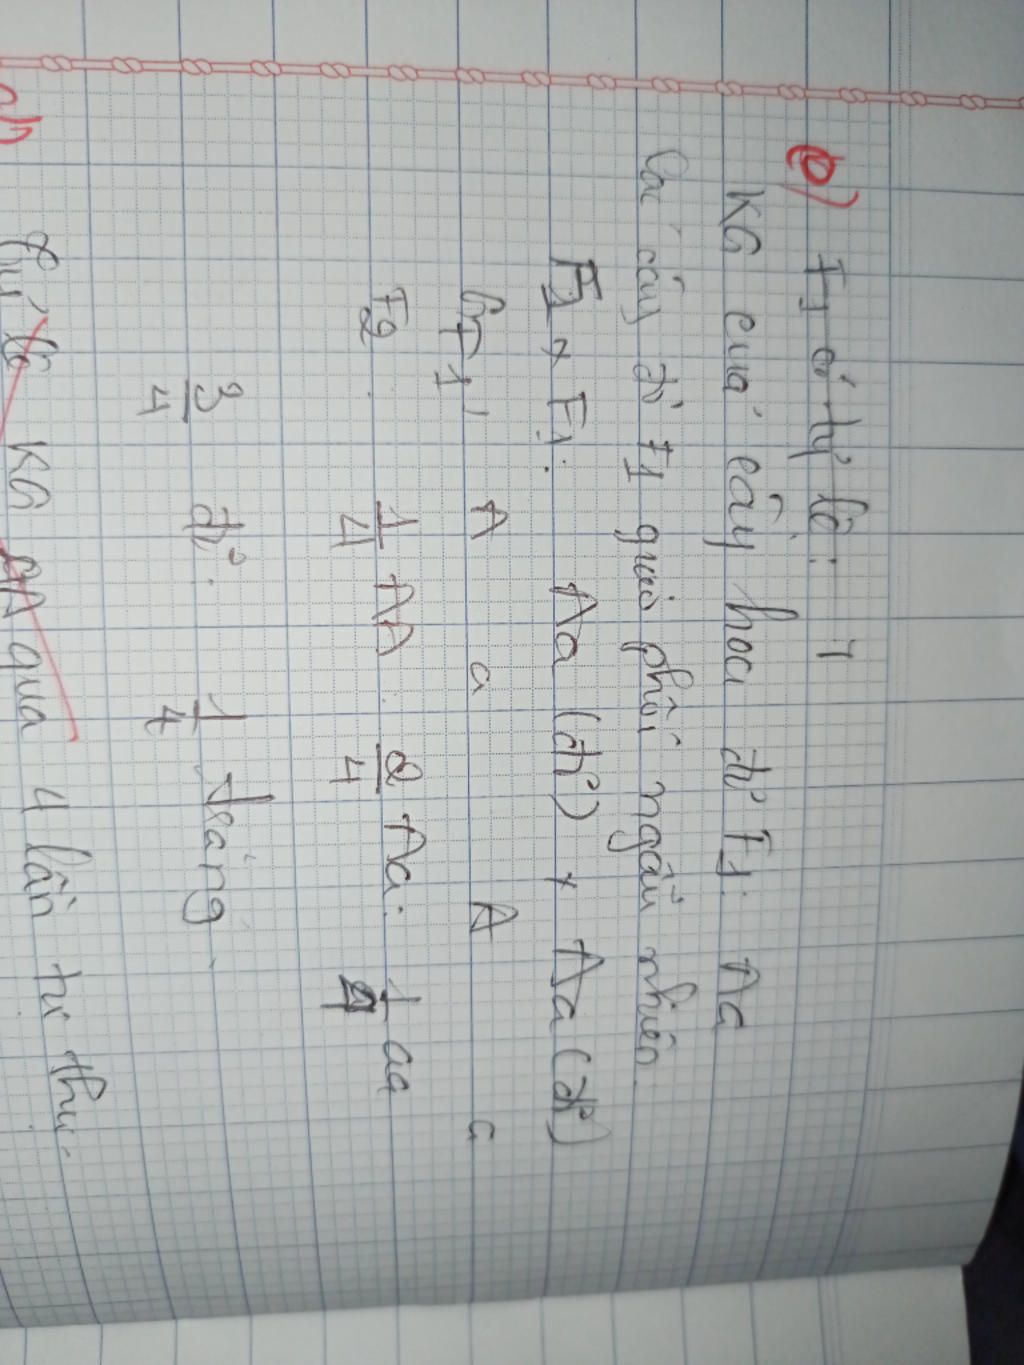 c) F1 có tỷ lệ: 1
KG của cây hoa đỏ F1: Aa
Các cây đỏ F1 giao phối ngẫu nhiên
F1 x F1: Aa (đỏ) x Aa (đỏ)
GF1: A a A a
F2: 1/4 AA : 2/4 Aa : 1/4 aa
3/4 đỏ : 1/4 trắng.
d) Tỷ lệ KG AA qua 4 lần tự thụ.